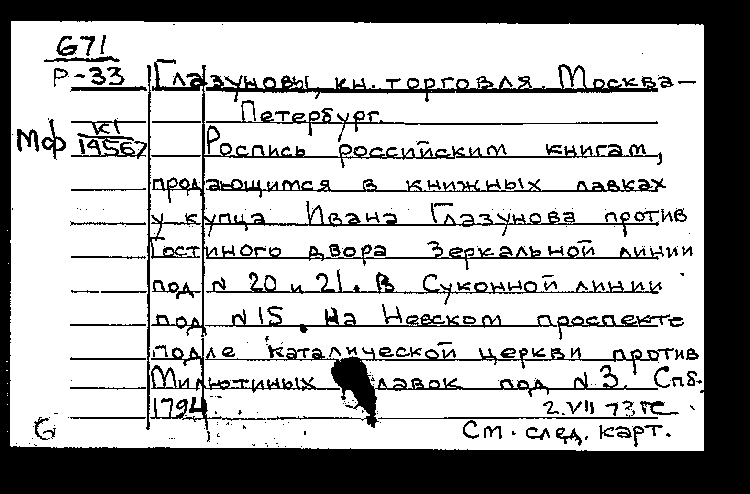 G71
Р-33
Глазуновы, кн. торговля. Москва—
Петербург.
Мф К1
14567
Роспись российским книгам,
продающимся в книжных лавках
у купца Ивана Глазунова против
Гостиного двора Зеркальной линии
под N 20 и 21. В Суконной линии
под N 15. На Невском проспекте
подле каталической церкви против
Милютиных лавок под N 3. Спб.
1794
2.VII 73 гс
G
См. след. карт.